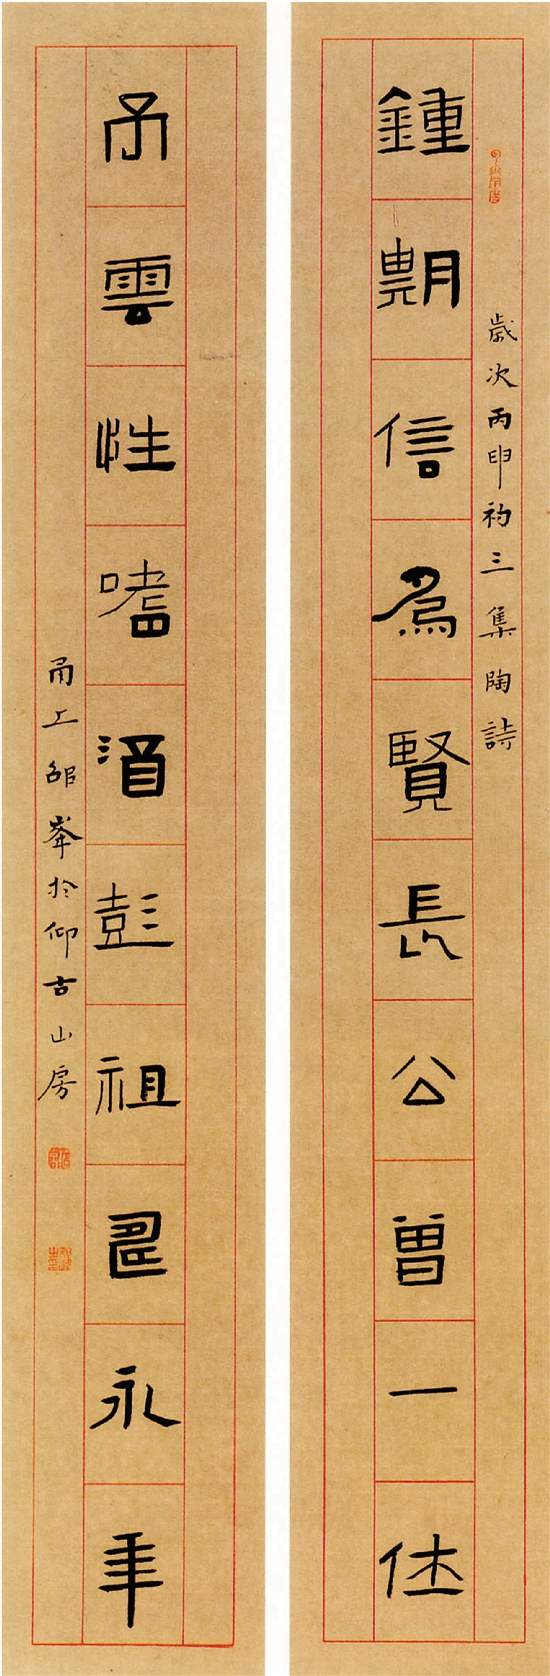 歲次丙申初三集陶詩
鍾期信爲賢長公曾一仕
子雲性嗜酒彭祖愛永年
甬上邵峯於仰古山房